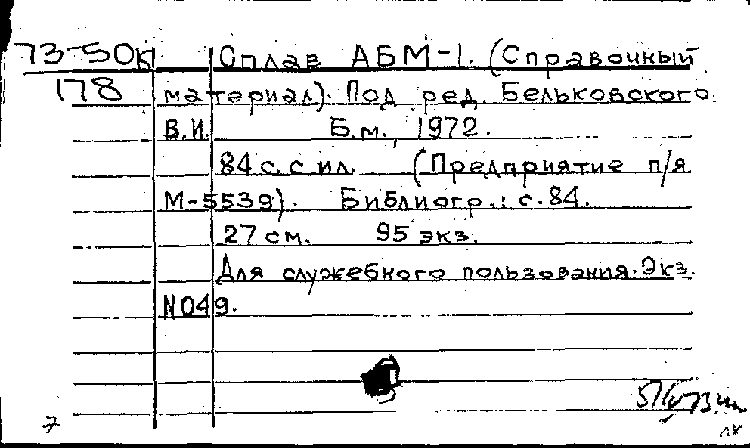 73-50к Сплав АБМ-1. (Справочный
178 материал). Под ред. Бельковского
В.И. Б.м., 1972.
84 с. с ил. (Предприятие п/я
М-5539). Библиогр.: с. 84.
27 см. 95 экз.
Для служебного пользования. Экз.
N049.
7
лк